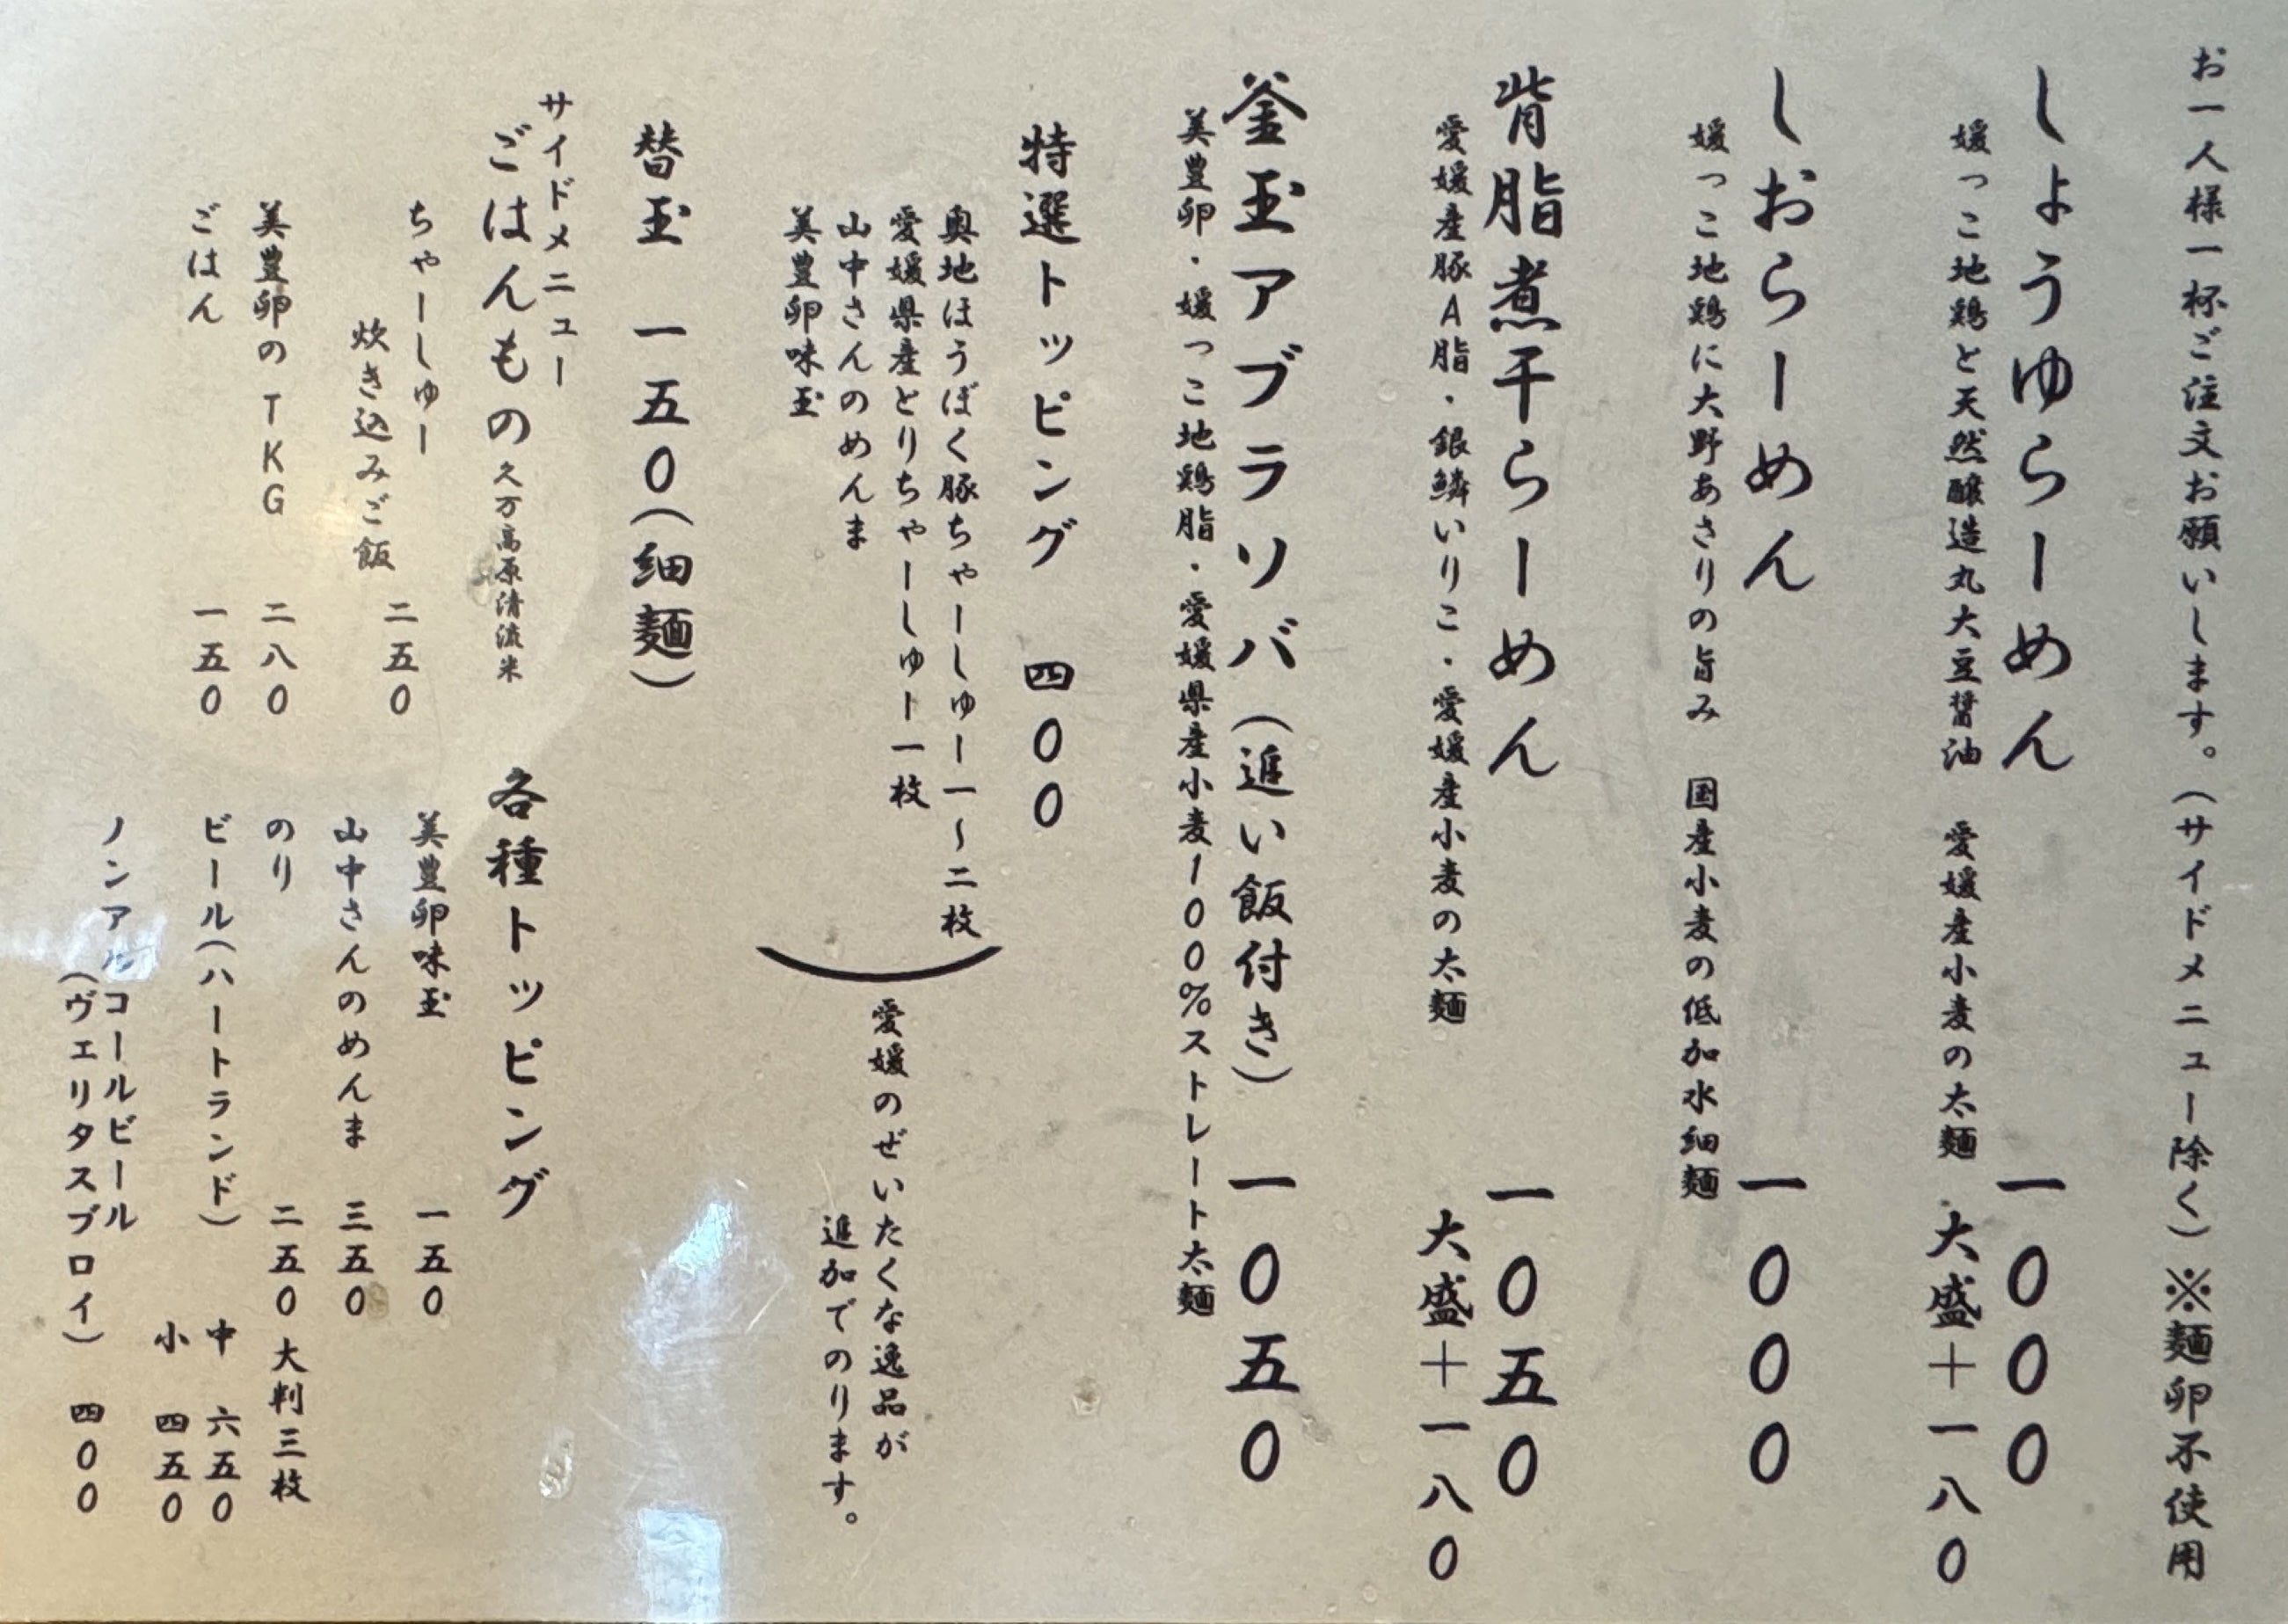 お一人様一杯ご注文お願いします。(サイドメニュー除く)※麺卵不使用
しょうゆらーめん 一000
媛っこ地鶏と天然醸造丸大豆醤油 愛媛産小麦の太麺 大盛+一八0
しおらーめん 一000
媛っこ地鶏に大野あさりの旨み 国産小麦の低加水細麺
背脂煮干らーめん 一0五0
愛媛産豚A脂・銀鱗いりこ・愛媛産小麦の太麺 大盛+一八0
釜玉アブラソバ(追い飯付き) 一0五0
美豊卵・媛っこ地鶏脂・愛媛県産小麦100%ストレート太麺
特選トッピング 四00
奥地ほうぼく豚ちゃーしゅー一~二枚
愛媛県産とりちゃーしゅー一枚
山中さんのめんま
美豊卵味玉
愛媛のぜいたくな逸品が
追加でのります。
替玉 一五0(細麺)
サイドメニュー
ごはんもの 久万高原清流米
ちゃーしゅー
炊き込みご飯 二五0
美豊卵のTKG 二八0
ごはん 一五0
各種トッピング
美豊卵味玉 一五0
山中さんのめんま 三五0
のり 二五0 大判三枚
ビール(ハートランド) 中 六五0
小 四五0
ノンアルコールビール
(ヴェリタスブロイ) 四00